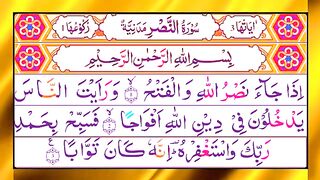 اٰيَاتُهَا ٣ سُوْرَةُ النَّصْرِ مَدَنِيَّةٌ رُكُوْعُهَا ١
بِسْمِ اللّٰهِ الرَّحْمٰنِ الرَّحِيْمِ
اِذَا جَآءَ نَصْرُ اللّٰهِ وَالْفَتْحُ ۙ۝١ وَرَاَيْتَ النَّاسَ
يَدْخُلُوْنَ فِيْ دِيْنِ اللّٰهِ اَفْوَاجًا ۙ۝٢ فَسَبِّحْ بِحَمْدِ
رَبِّكَ وَاسْتَغْفِرْهُ ؕ اِنَّهٗ كَانَ تَوَّابًا ۝٣